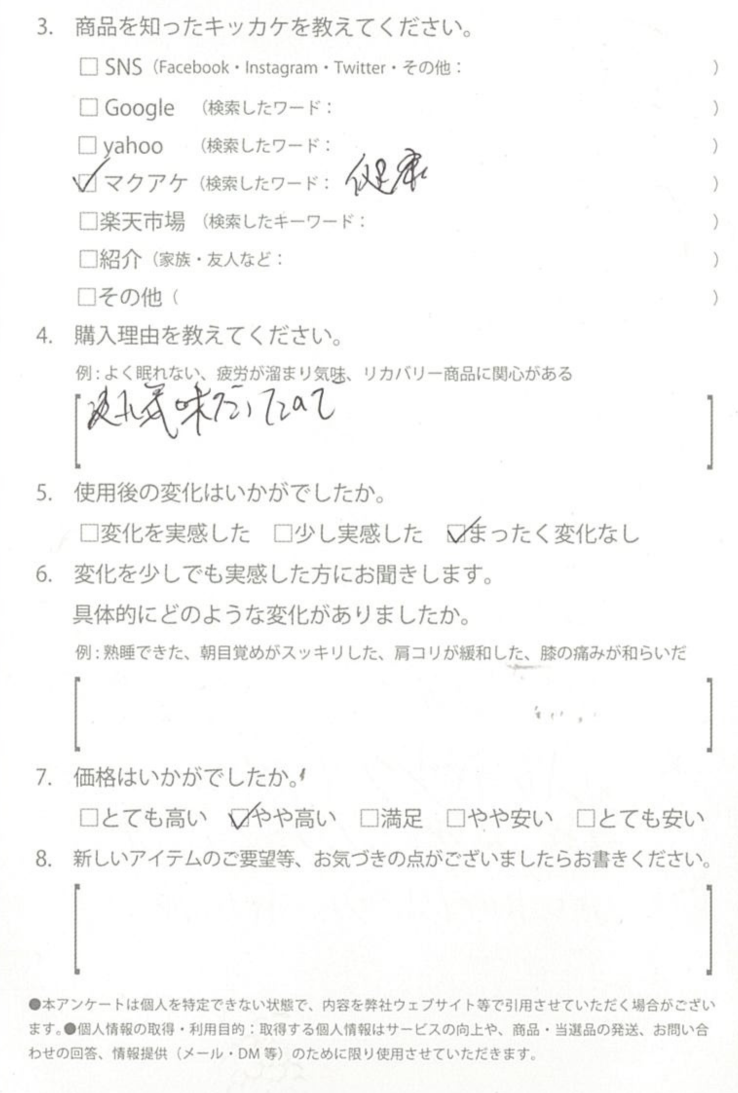 3. 商品を知ったキッカケを教えてください。
□ SNS（Facebook・Instagram・Twitter・その他： ）
□ Google （検索したワード： ）
□ yahoo （検索したワード： ）
☑ マクアケ（検索したワード： 健康 ）
□楽天市場 （検索したキーワード： ）
□紹介（家族・友人など： ）
□その他（ ）
4. 購入理由を教えてください。
例：よく眠れない、疲労が溜まり気味、リカバリー商品に関心がある
疲れ気味だったので
5. 使用後の変化はいかがでしたか。
□変化を実感した □少し実感した ☑まったく変化なし
6. 変化を少しでも実感した方にお聞きします。
具体的にどのような変化がありましたか。
例：熟睡できた、朝目覚めがスッキリした、肩コリが緩和した、膝の痛みが和らいだ
7. 価格はいかがでしたか。
□とても高い ☑やや高い □満足 □やや安い □とても安い
8. 新しいアイテムのご要望等、お気づきの点がございましたらお書きください。
●本アンケートは個人を特定できない状態で、内容を弊社ウェブサイト等で引用させていただく場合がござい
ます。●個人情報の取得・利用目的：取得する個人情報はサービスの向上や、商品・当選品の発送、お問い合
わせの回答、情報提供（メール・DM 等）のために限り使用させていただきます。